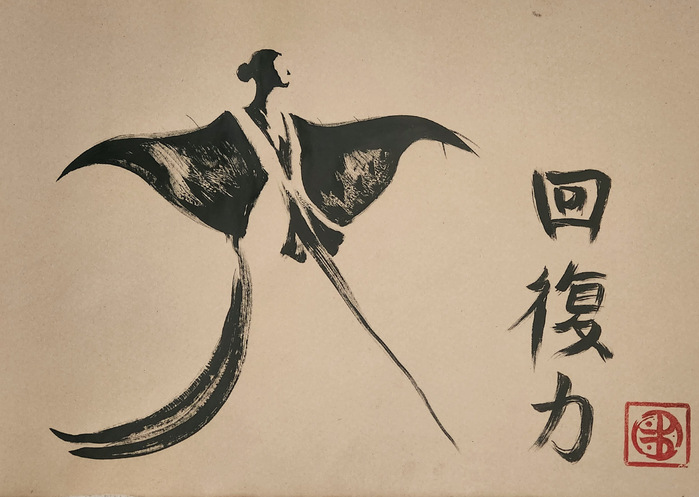 回復力